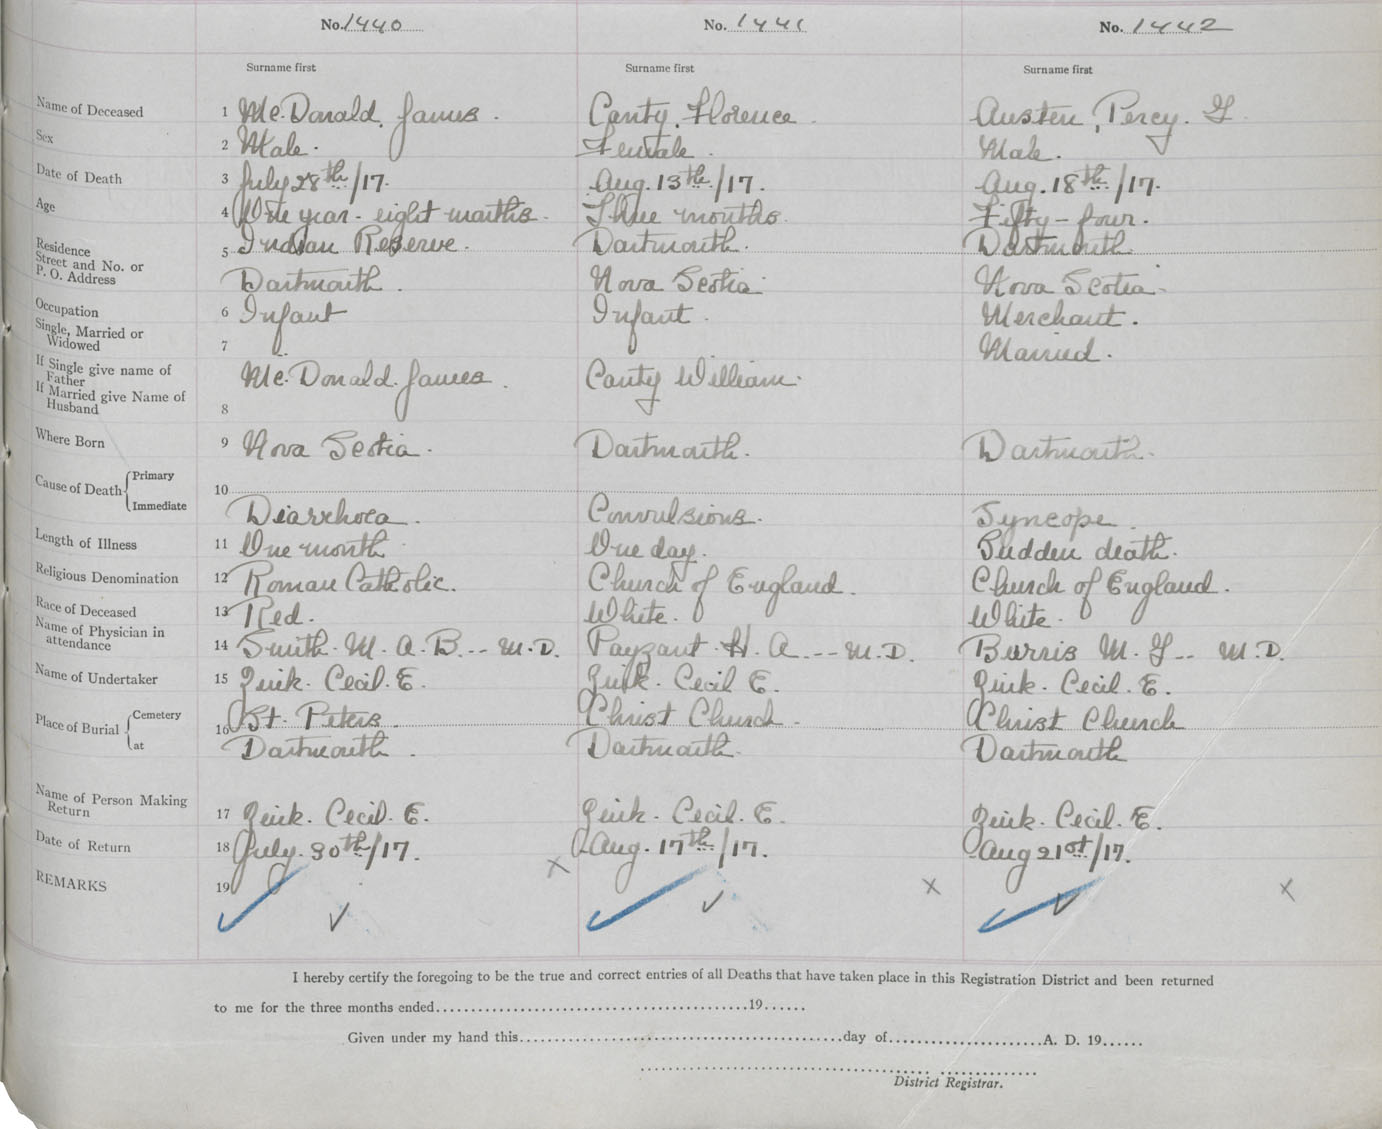 No. 1440 No. 1441 No. 1442
Surname first Surname first Surname first
Name of Deceased 1 Mc.Donald, James. Canty, Florence. Austen, Percy. G.
Sex 2 Male. Female. Male.
Date of Death 3 July 28th/17. Aug. 13th/17. Aug. 18th/17.
Age 4 One year - eight months. Three months. Fifty - four.
Residence
Street and No. or
P. O. Address 5 Indian Reserve. Dartmouth. Dartmouth
Dartmouth. Nova Scotia. Nova Scotia.
Occupation 6 Infant Infant. Merchant.
Single, Married or
Widowed 7 Married.
If Single give name of
Father Mc. Donald. James. Canty William.
If Married give Name of
Husband 8
Where Born 9 Nova Scotia. Dartmouth. Dartmouth.
Cause of Death Primary 10
Immediate Diarrhoea. Convulsions. Syncope.
Length of Illness 11 One month One day. Sudden death.
Religious Denomination 12 Roman Catholic. Church of England. Church of England.
Race of Deceased 13 Red. White. White.
Name of Physician in
attendance 14 Smith. M. A. B. -- M.D. Payzant. H. A. --- M.D. Burris M. G -- M.D.
Name of Undertaker 15 Zink. Cecil. E. Zink. Cecil E. Zink. Cecil. E.
Place of Burial Cemetery 16 St. Peters. Christ Church. Christ Church
at Dartmouth. Dartmouth. Dartmouth
Name of Person Making
Return 17 Zink. Cecil. E. Zink. Cecil. E. Zink. Cecil. E.
Date of Return 18 July. 30th/17. Aug. 17th/17. Aug 21st/17.
REMARKS 19
I hereby certify the foregoing to be the true and correct entries of all Deaths that have taken place in this Registration District and been returned
to me for the three months ended..........19......
Given under my hand this..........day of..........A. D. 19......
District Registrar.